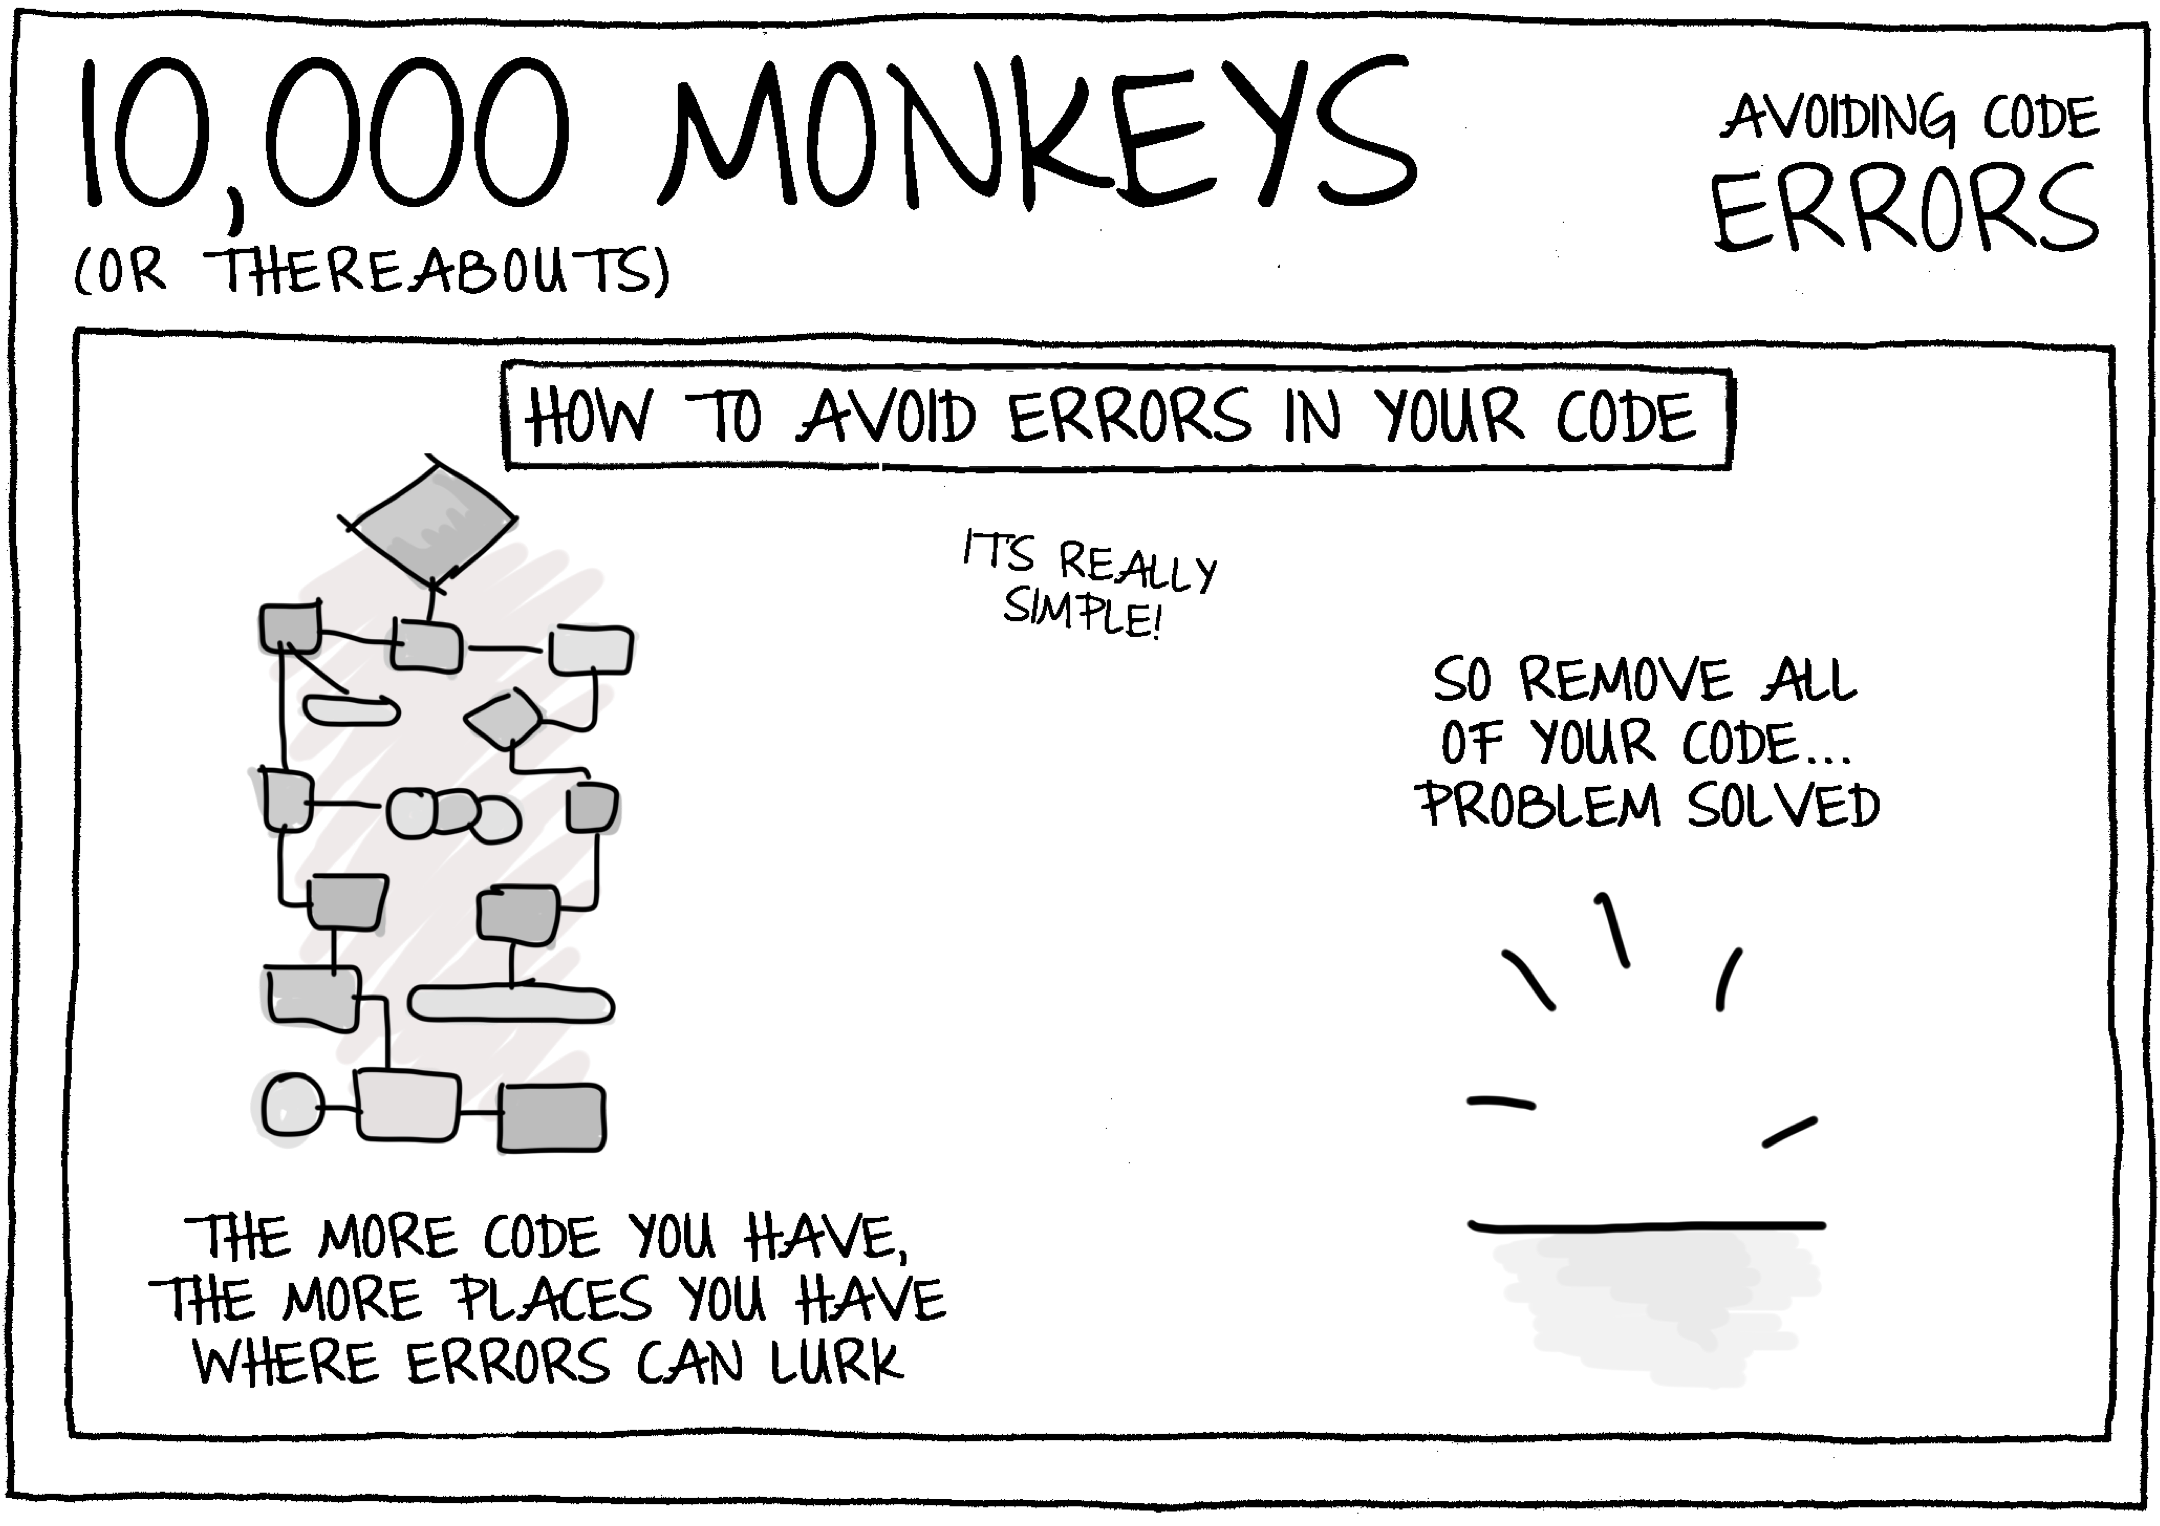 10,000 MONKEYS
(OR THEREABOUTS)
AVOIDING CODE
ERRORS
HOW TO AVOID ERRORS IN YOUR CODE
ITS REALLY
SIMPLE!
THE MORE CODE YOU HAVE,
THE MORE PLACES YOU HAVE
WHERE ERRORS CAN LURK
SO REMOVE ALL
OF YOUR CODE...
PROBLEM SOLVED